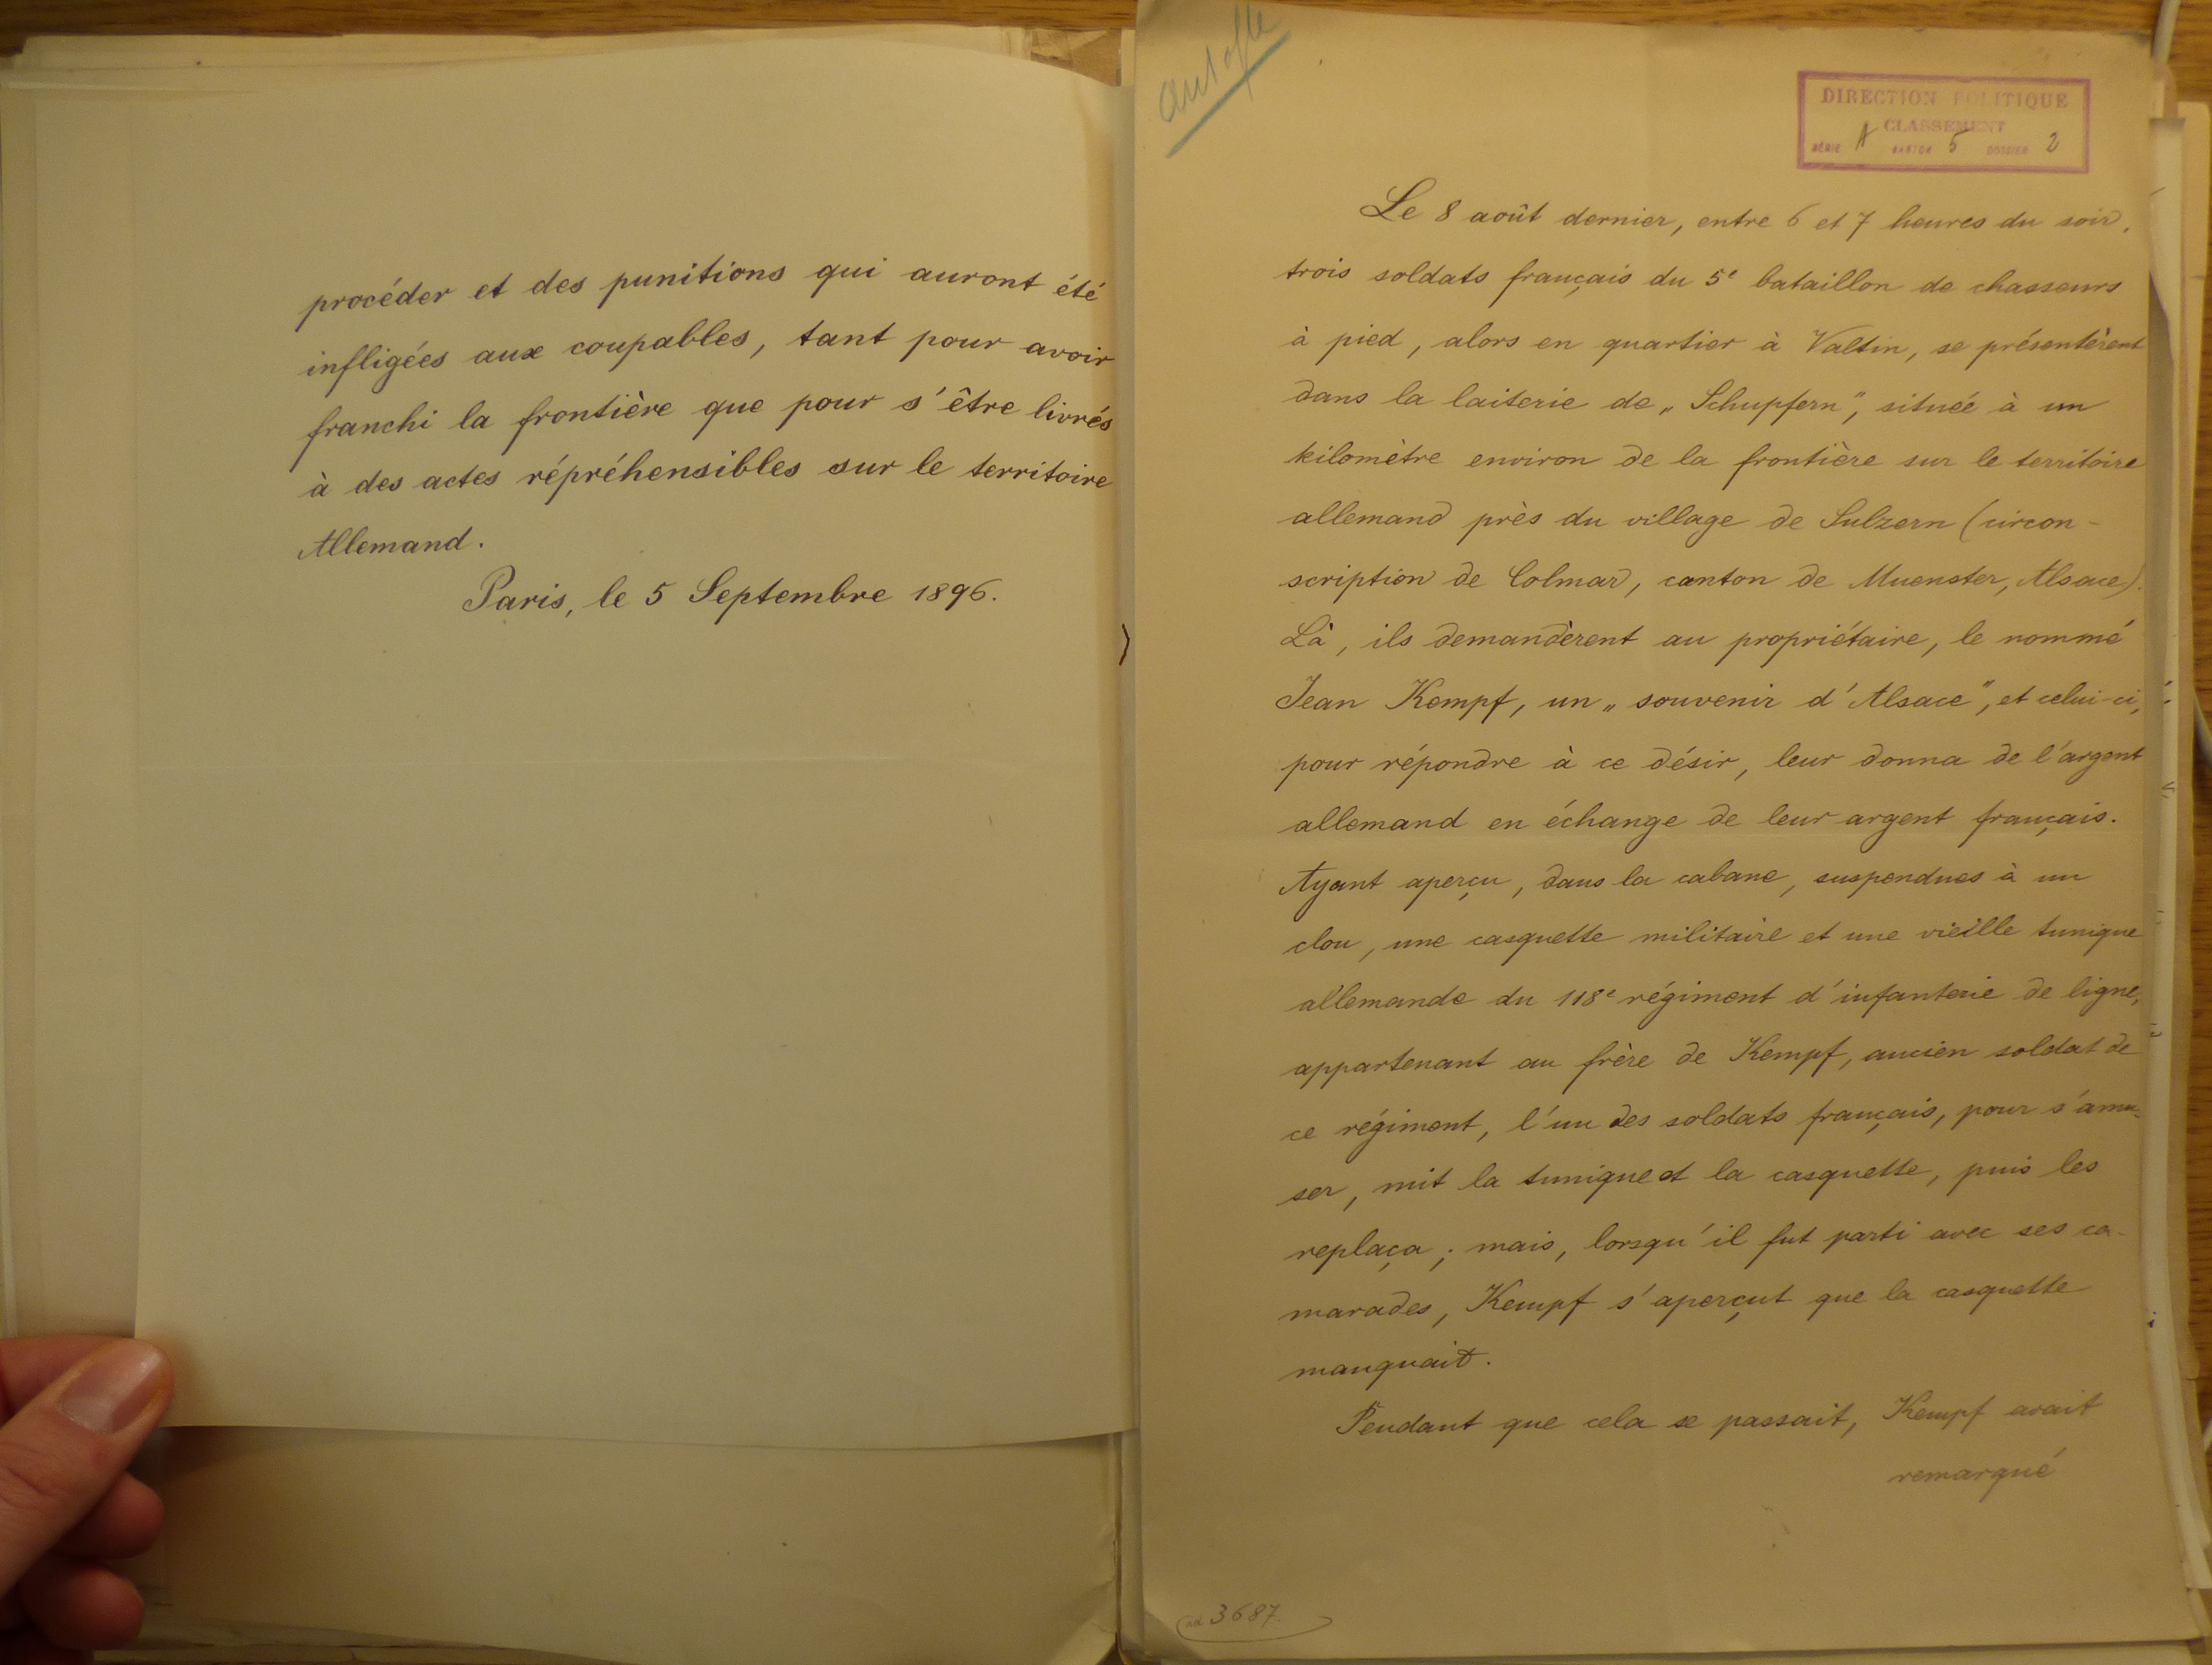 procéder et des punitions qui auront été
infligées aux coupables, tant pour avoir
franchi la frontière que pour s'être livrés
à des actes répréhensibles sur le territoire
Allemand.
Paris, le 5 Septembre 1896.
DIRECTION POLITIQUE
CLASSEMENT
SÉRIE A CARTON 5 DOSSIER 2
Le 8 août dernier, entre 6 et 7 heures du soir,
trois soldats français du 5e bataillon de chasseurs
à pied, alors en quartier à Valtin, se présentèrent
dans la laiterie de „Schupfern", située à un
kilomètre environ de la frontière sur le territoire
allemand près du village de Sulzern (circon-
scription de Colmar, canton de Muenster, Alsace).
Là, ils demandèrent au propriétaire, le nommé
Jean Kempf, un „souvenir d'Alsace", et celui-ci,
pour répondre à ce désir, leur donna de l'argent
allemand en échange de leur argent français.
Ayant aperçu, dans la cabane, suspendues à un
clou, une casquette militaire et une vieille tunique
allemande du 118e régiment d'infanterie de ligne,
appartenant au frère de Kempf, ancien soldat de
ce régiment, l'un des soldats français, pour s'amu-
ser, mit la tunique et la casquette, puis les
replaça; mais, lorsqu'il fut parti avec ses ca-
marades, Kempf s'aperçut que la casquette
manquait.
Pendant que cela se passait, Kempf avait
remarqué
ad 3687